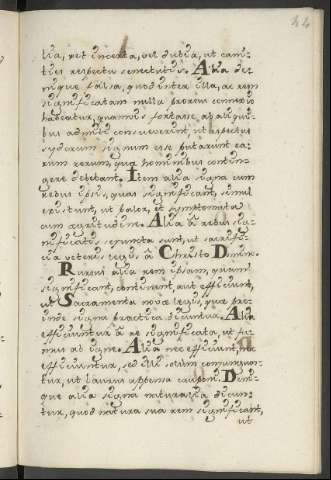 44
lia, vel incerta, vel dubia, ut cani-
ties respectu senectutis. Alia de-
nique falsa, quod inter illa, ac rem
significatam nulla prorsus connexio
habeatur, quamvis fortasse ab aliqui-
bus admitti consueverint, ut aspectus
syderum signum esse putarunt ea-
rum rerum, quæ hominibus contin-
gere debebant. Item alia signa cum
rebus ipsis, quas significant, simul
existunt, ut calor, et symptomata
cum ægritudine. Alia a rebus sig-
nificatis sejuncta sunt, ut sacrifi-
cia veteris legis a Christo Domino.
Rursus alia rem ipsam, quam
significant, continent, aut efficiunt,
ut Sacramenta novæ legis, quæ pro-
inde signa practica dicuntur. Alia
efficiuntur a re significata, ut fu-
mus ab igne. Alia nec efficiunt, nec
efficiuntur, sed illi solum conjungun-
tur, ut laurus appensa cauponi. Deni-
que alia signa naturalia dicun-
tur, quod natura sua rem significant,
ut